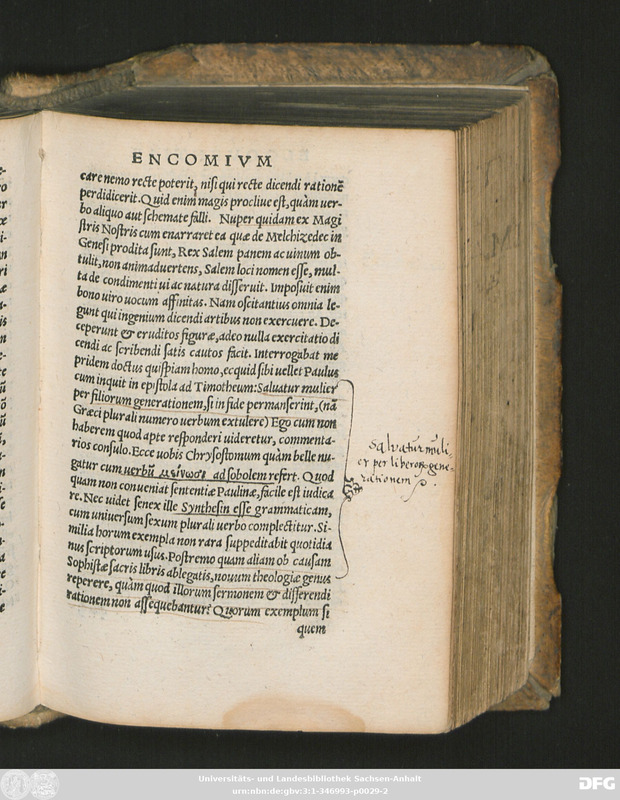 ENCOMIVM
care nemo recte poterit, nisi qui recte dicendi rationẽ
perdidicerit. Quid enim magis proclive est, quàm ver-
bo aliquo aut schemate falli. Nuper quidam ex Magi
stris Nostris cum enarraret ea quæ de Melchizedec in
Genesi prodita sunt, Rex Salem panem ac uinum ob-
tulit, non animaduertens, Salem loci nomen esse, mul-
ta de condimenti ui ac natura disseruit. Imposuit enim
bono uiro uocum affinitas. Nam oscitantius omnia le-
gunt qui ingenium dicendi artibus non exercuere. De-
ceperunt & eruditos figuræ, adeo nulla exercitatio di
cendi ac scribendi satis cautos facit. Interrogabat me
pridem doctus quispiam homo, ecquid sibi uellet Paulus
cum inquit in epistola ad Timotheum: Saluatur mulier
per filiorum generationem, si in fide permanserint, (nã
Græci plurali numero uerbum extulere) Ego cum non
haberem quod apte responderi uideretur, commenta-
rios consulo. Ecce uobis Chrysostomum quàm belle nu-
gatur cum uerbũ μείνωσι ad sobolem refert. Quod
quam non conueniat sententiæ Paulinæ, facile est iudica
re. Nec uidet senex ille Synthesin esse grammaticam,
cum uniuersum sexum plurali uerbo complectitur. Si-
milia horum exempla non rara suppeditabit quotidia
nus scriptorum usus. Postremo quam aliam ob causam
Sophistæ sacris libris ablegatis, nouum theologiæ genus
reperere, quàm quod illorum sermonem & disserendi
rationem non assequebantur? Quorum exemplum si
quem
Salvatur muli-
er per liberorum gene-
rationem
Universitäts- und Landesbibliothek Sachsen-Anhalt
urn:nbn:de:gbv:3:1-346993-p0029-2
DFG